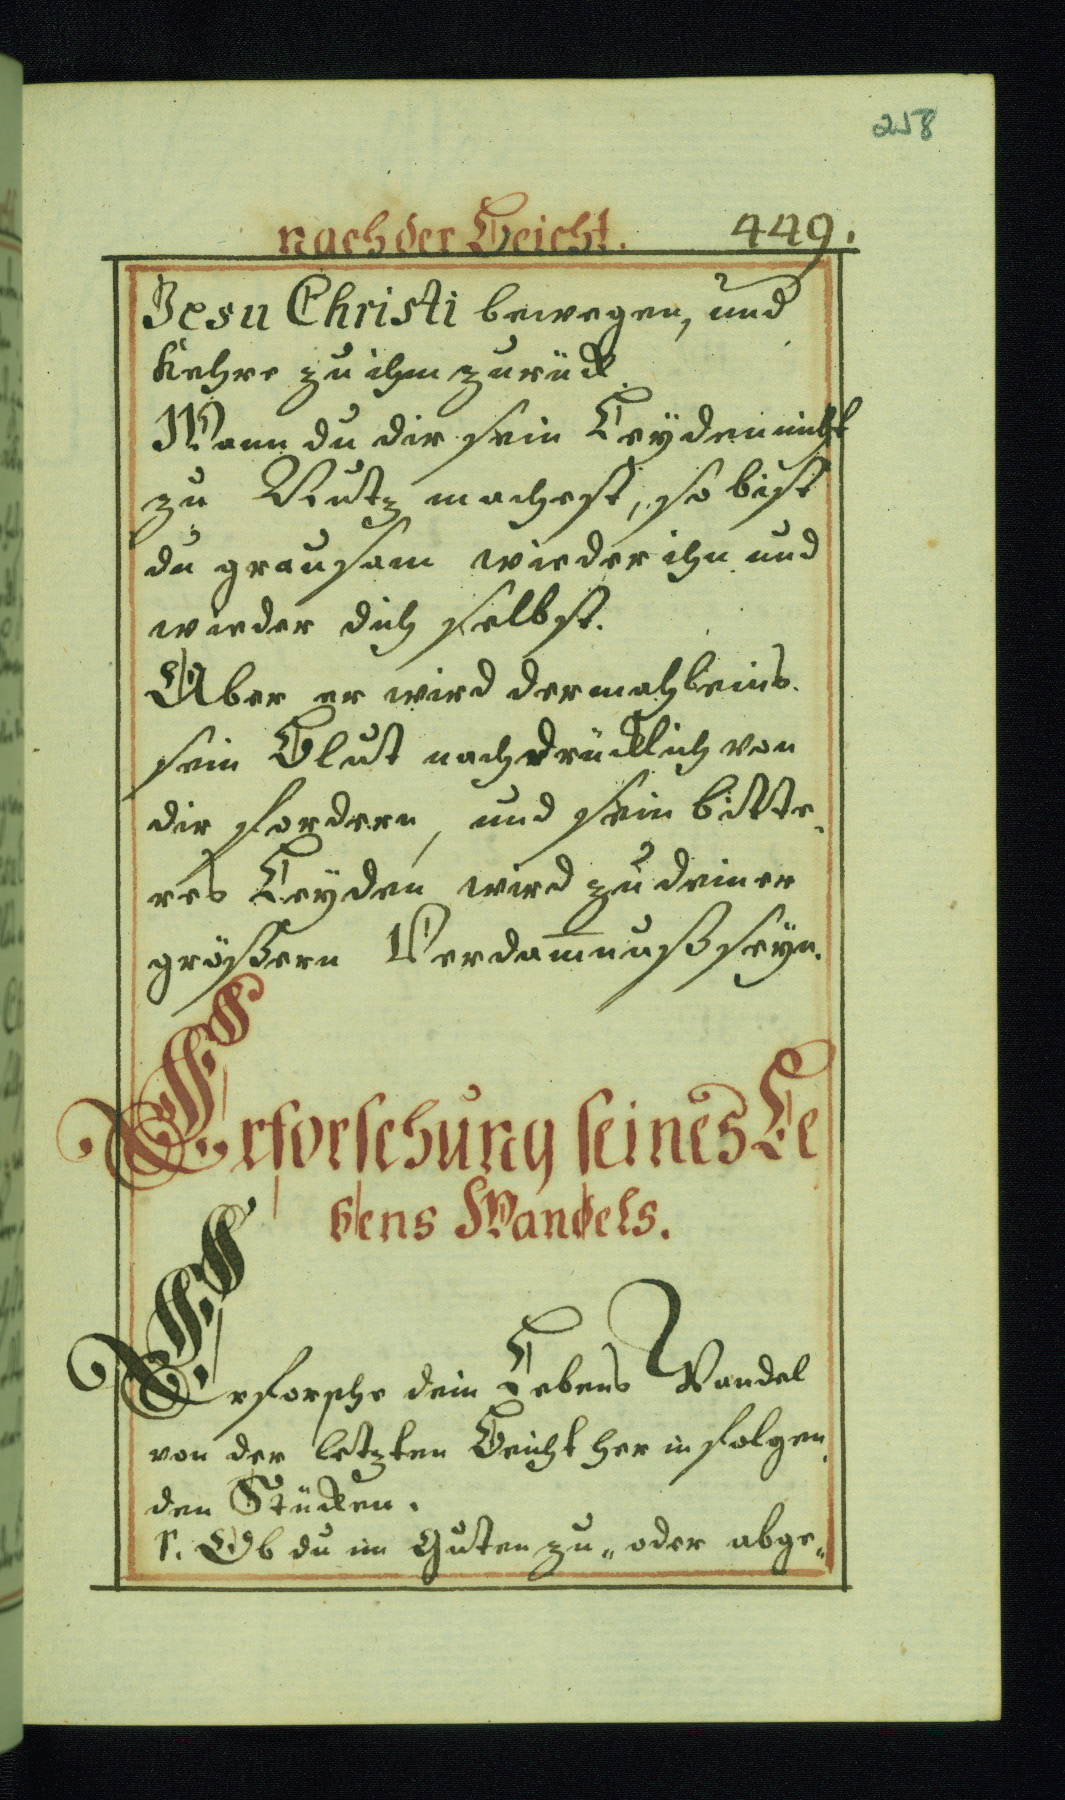 258
nach der Beicht. 449.
Jesu Christi bewegen, und
Kehre zu ihm zurück.
Wann du dir sein Leÿden nicht
zu Nutz machest, so bist
du grausam wieder ihn und
wieder dich selbst.
Aber er wird dermahleins
sein Blut nachdrücklich von
dir fordern, und sein bitte,
res Leÿden wird zu deiner
größern Verdam̅nuß seÿn.
Erforschung seines Le
bens Wandels.
Erforsche dein Lebens Wandel
von der letzten Beicht her in folgen,
den Stücken.
1. Ob du im Guten zu„ oder abge„